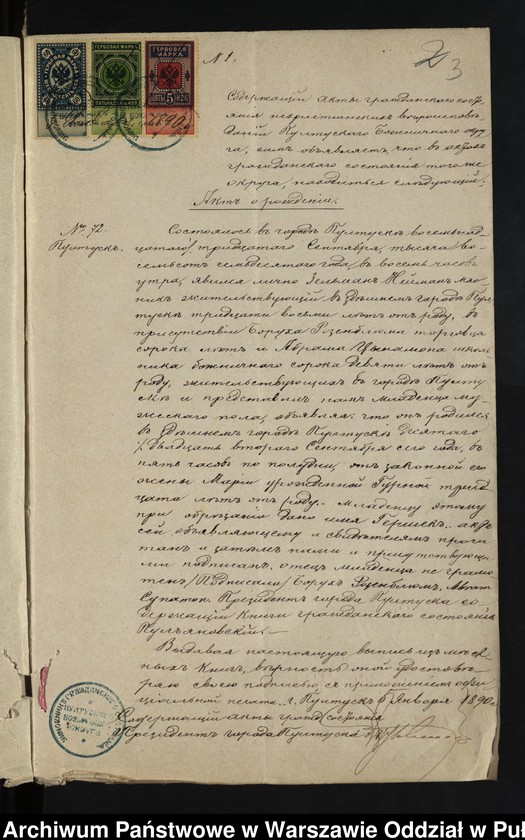 № 1.
2
3
ГЕРБОВАЯ МАРКА
ГЕРБОВАЯ МАРКА
ПЯТЬ 5 КОП
1890
Содержащий акты гражданского состо-
яния нехристианских вероисповѣ-
даній Пултускаго Божничнаго окру-
га, симъ объявляетъ, что въ актахъ
гражданскаго состоянія того же
округа, находиться слѣдующій:
Актъ о рожденіи.
№ 72.
Пултускъ.
Состоялось въ городѣ Пултускѣ восемьнад-
цатаго/тридцатаго Сентября, тысяча во-
семьсотъ семьдесятаго года, въ восемь часовъ
утра, явился лично Зельманъ Нейманъ
жительствующій въ здѣшнемъ городѣ Пул-
тускѣ тридцати восьми лѣтъ отъ роду, въ
присутствіи Боруха Розенблюма торговца
сорока лѣтъ и Абрама Цынамона школь-
ника божничнаго сорока девяти лѣтъ отъ
роду, жительствующихъ въ городѣ Пулту-
скѣ и представилъ намъ младенца му-
жескаго пола, объявляя, что онъ родился
въ здѣшнемъ городѣ Пултускѣ десятаго
/двадцать втораго Сентября сего года, въ
пять часовъ по полудни, отъ законной его
жены Маріи урожденной Гурной трид-
цати лѣтъ отъ роду. Младенцу этому
при обрѣзаніи дано имя Гершекъ. Актъ
сей объявляющему и свидѣтелямъ прочи-
танъ и затѣмъ нами и присутствующи-
ми подписанъ, отецъ младенца не грамо-
тенъ /Подписали/ Борухъ Розенблюмъ,
Президентъ города Пултуска со-
держащій Книги гражданскаго состоянія
Выдавая настоящую выпись изъ
ныхъ Книгъ, вѣрность оной удостовѣ-
ряю своею подписью съ приложеніемъ офи-
ціальной печати. г. Пултускъ Января 1890 г.
Содержащій акты гражд. состоянія
Президентъ города Пултуска
Archiwum Państwowe w Warszawie Oddział w Puł